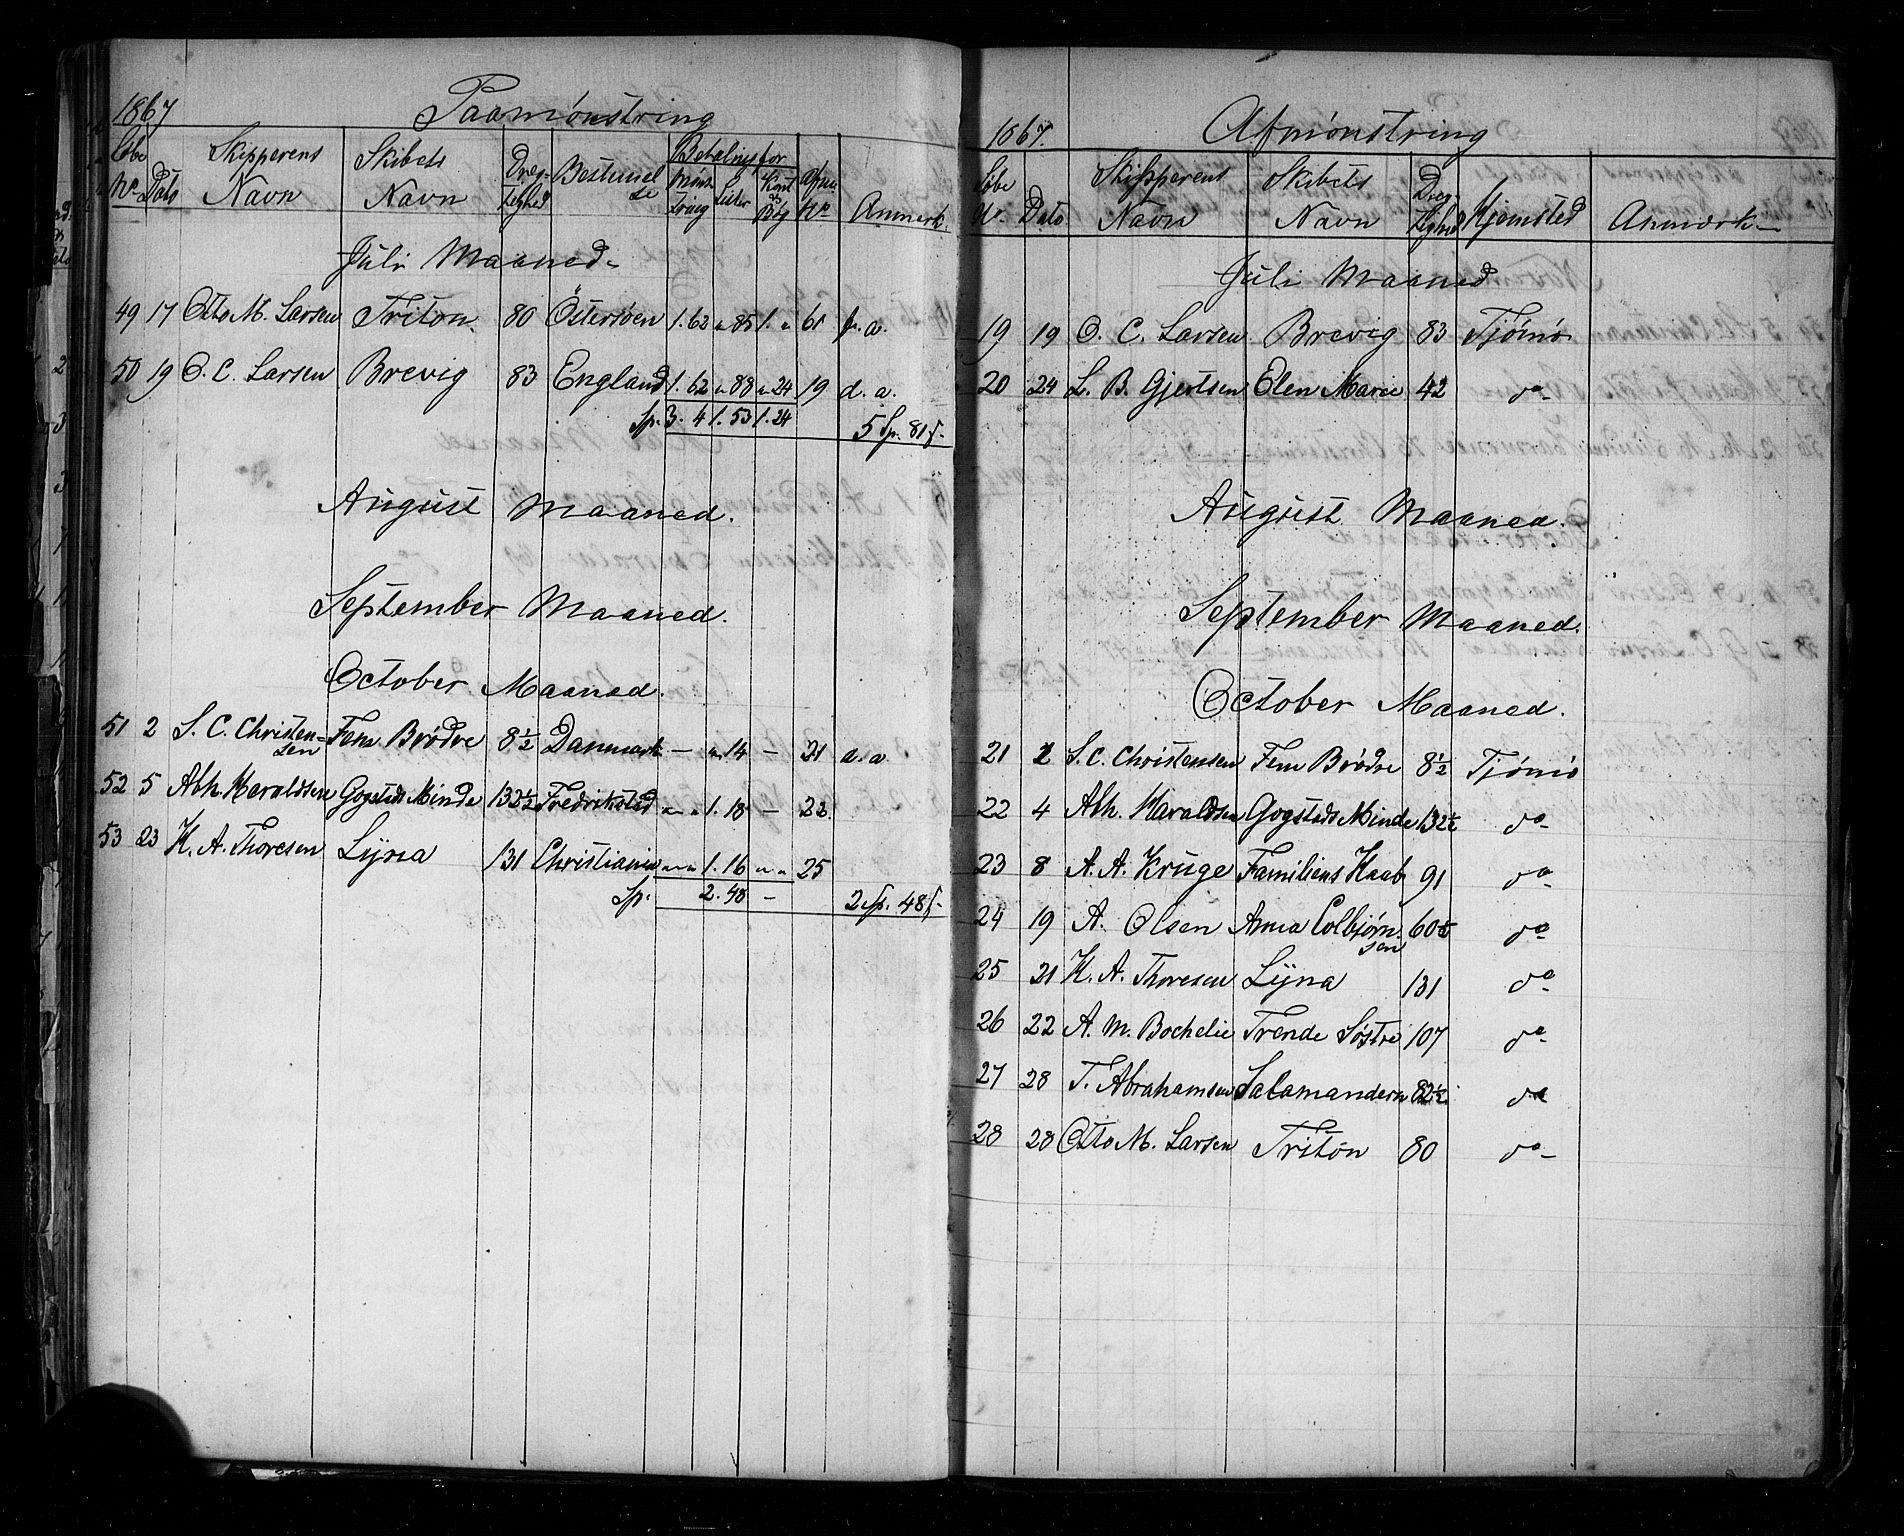 1867 Paamønstring
Løbe No Dato Skipperens Navn Skibets Navn Dræg-tighed Bestemmelse Betaling for Mønstring Lister No Anmerk.
Juli Maaned.
49 17 Otto M. Larsen Triton 80 Östersøen 1.62 " 85 1. " 61 a.
50 19 O. C. Larsen Brevig 83 England 1.62 " 88 " 24 19 d. a.
Sp. 3. 4 1. 53 1.24 5 Sp. 81 ſ.
August Maaned.
September Maaned.
October Maaned.
51 2 S. C. Christen=sen Fem Brødre 8½ Danmark — " 14 — 21 a. a
52 5 Abh. Haraldsen Gogstads Minde 132½ Fredrikstad " " 1. 18 — 22.
53 23 K. A. Thoresen Lyna 131 Christiania " " 1. 16 " " 25
Sp. 2. 48 — 2 Sp. 48 ſ.
1867. Afmønstring
Løbe Nr. Dato Skipperens Navn Skibets Navn Dræg-tighed Hjemsted Anmærk.
Juli Maaned
19 19 O. C. Larsen Brevig 83 Tjømø
20 24 L. B. Gjertsen Elen Marie 42 do
August Maaned.
September Maaned.
October Maaned.
21 2 S. C. Christensen Fem Brødre 8½ Tjømø
22 4 Abh. Haraldsen Gogstads Minde 132½ do
23 8 A. A. Kruge Familiens Haab 91 do
24 19 A. Olsen Anna Colbjørnsen 60½ do
25 21 K. A. Thoresen Lyna 131 do
26 22 A. M. Bochelie Trende Søstre 107 do
27 28 T. Abrahamsen Salamandern 82½ do
28 28 Otto M. Larsen Triton 80 do